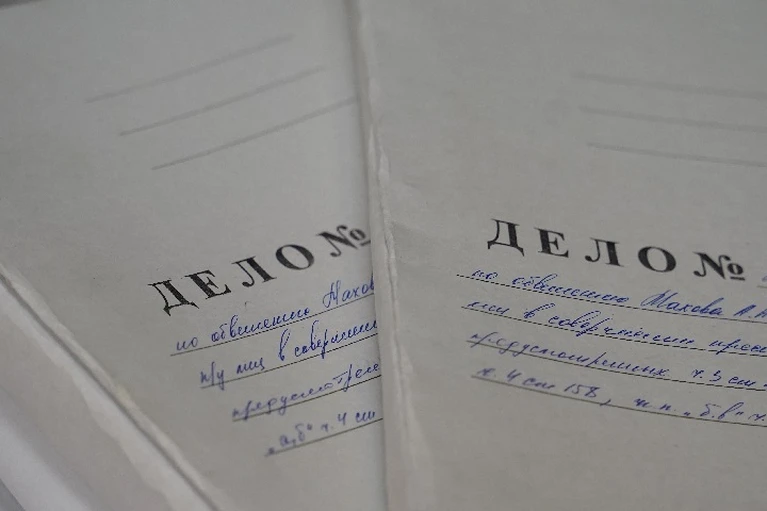 ДЕЛО №
по обвинению Махов
п/у лиц в соверше
предусмотре
„а,б" ч. 4 ст
ДЕЛО №
по обвинению Махова А.
лиц в совершении
предусмотренных ч. 3 ст.
ч. 4 ст 158, п.п. „б.в" ч.